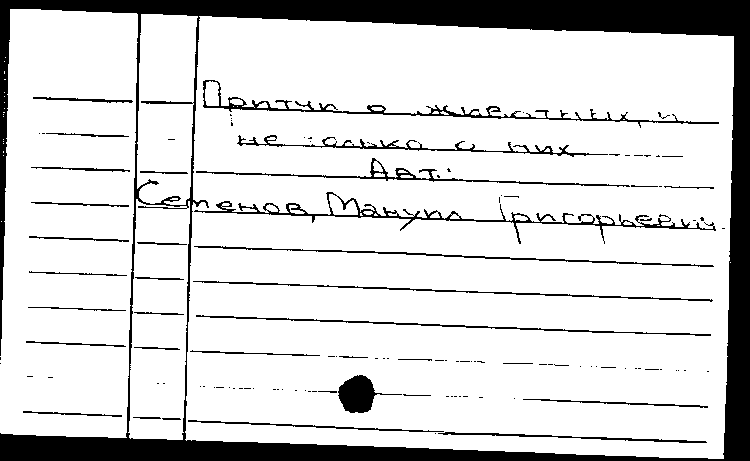 Притчи о животных, и
не только о них
Авт.:
Семенов, Мануил Григорьевич